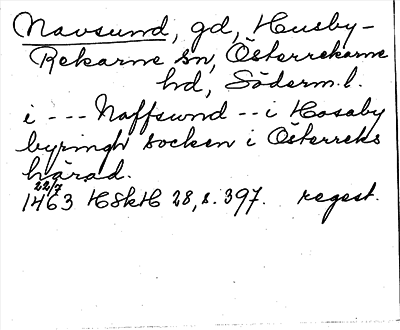 Navsund, gd, Husby-
Rekarne sn, Österrekarne
hd, Söderm. l.
i --- Naffsund -- i Hosaby
byringh socken i Österreks
härad.
22/7
1463 HSkH 28, s. 397. regest.